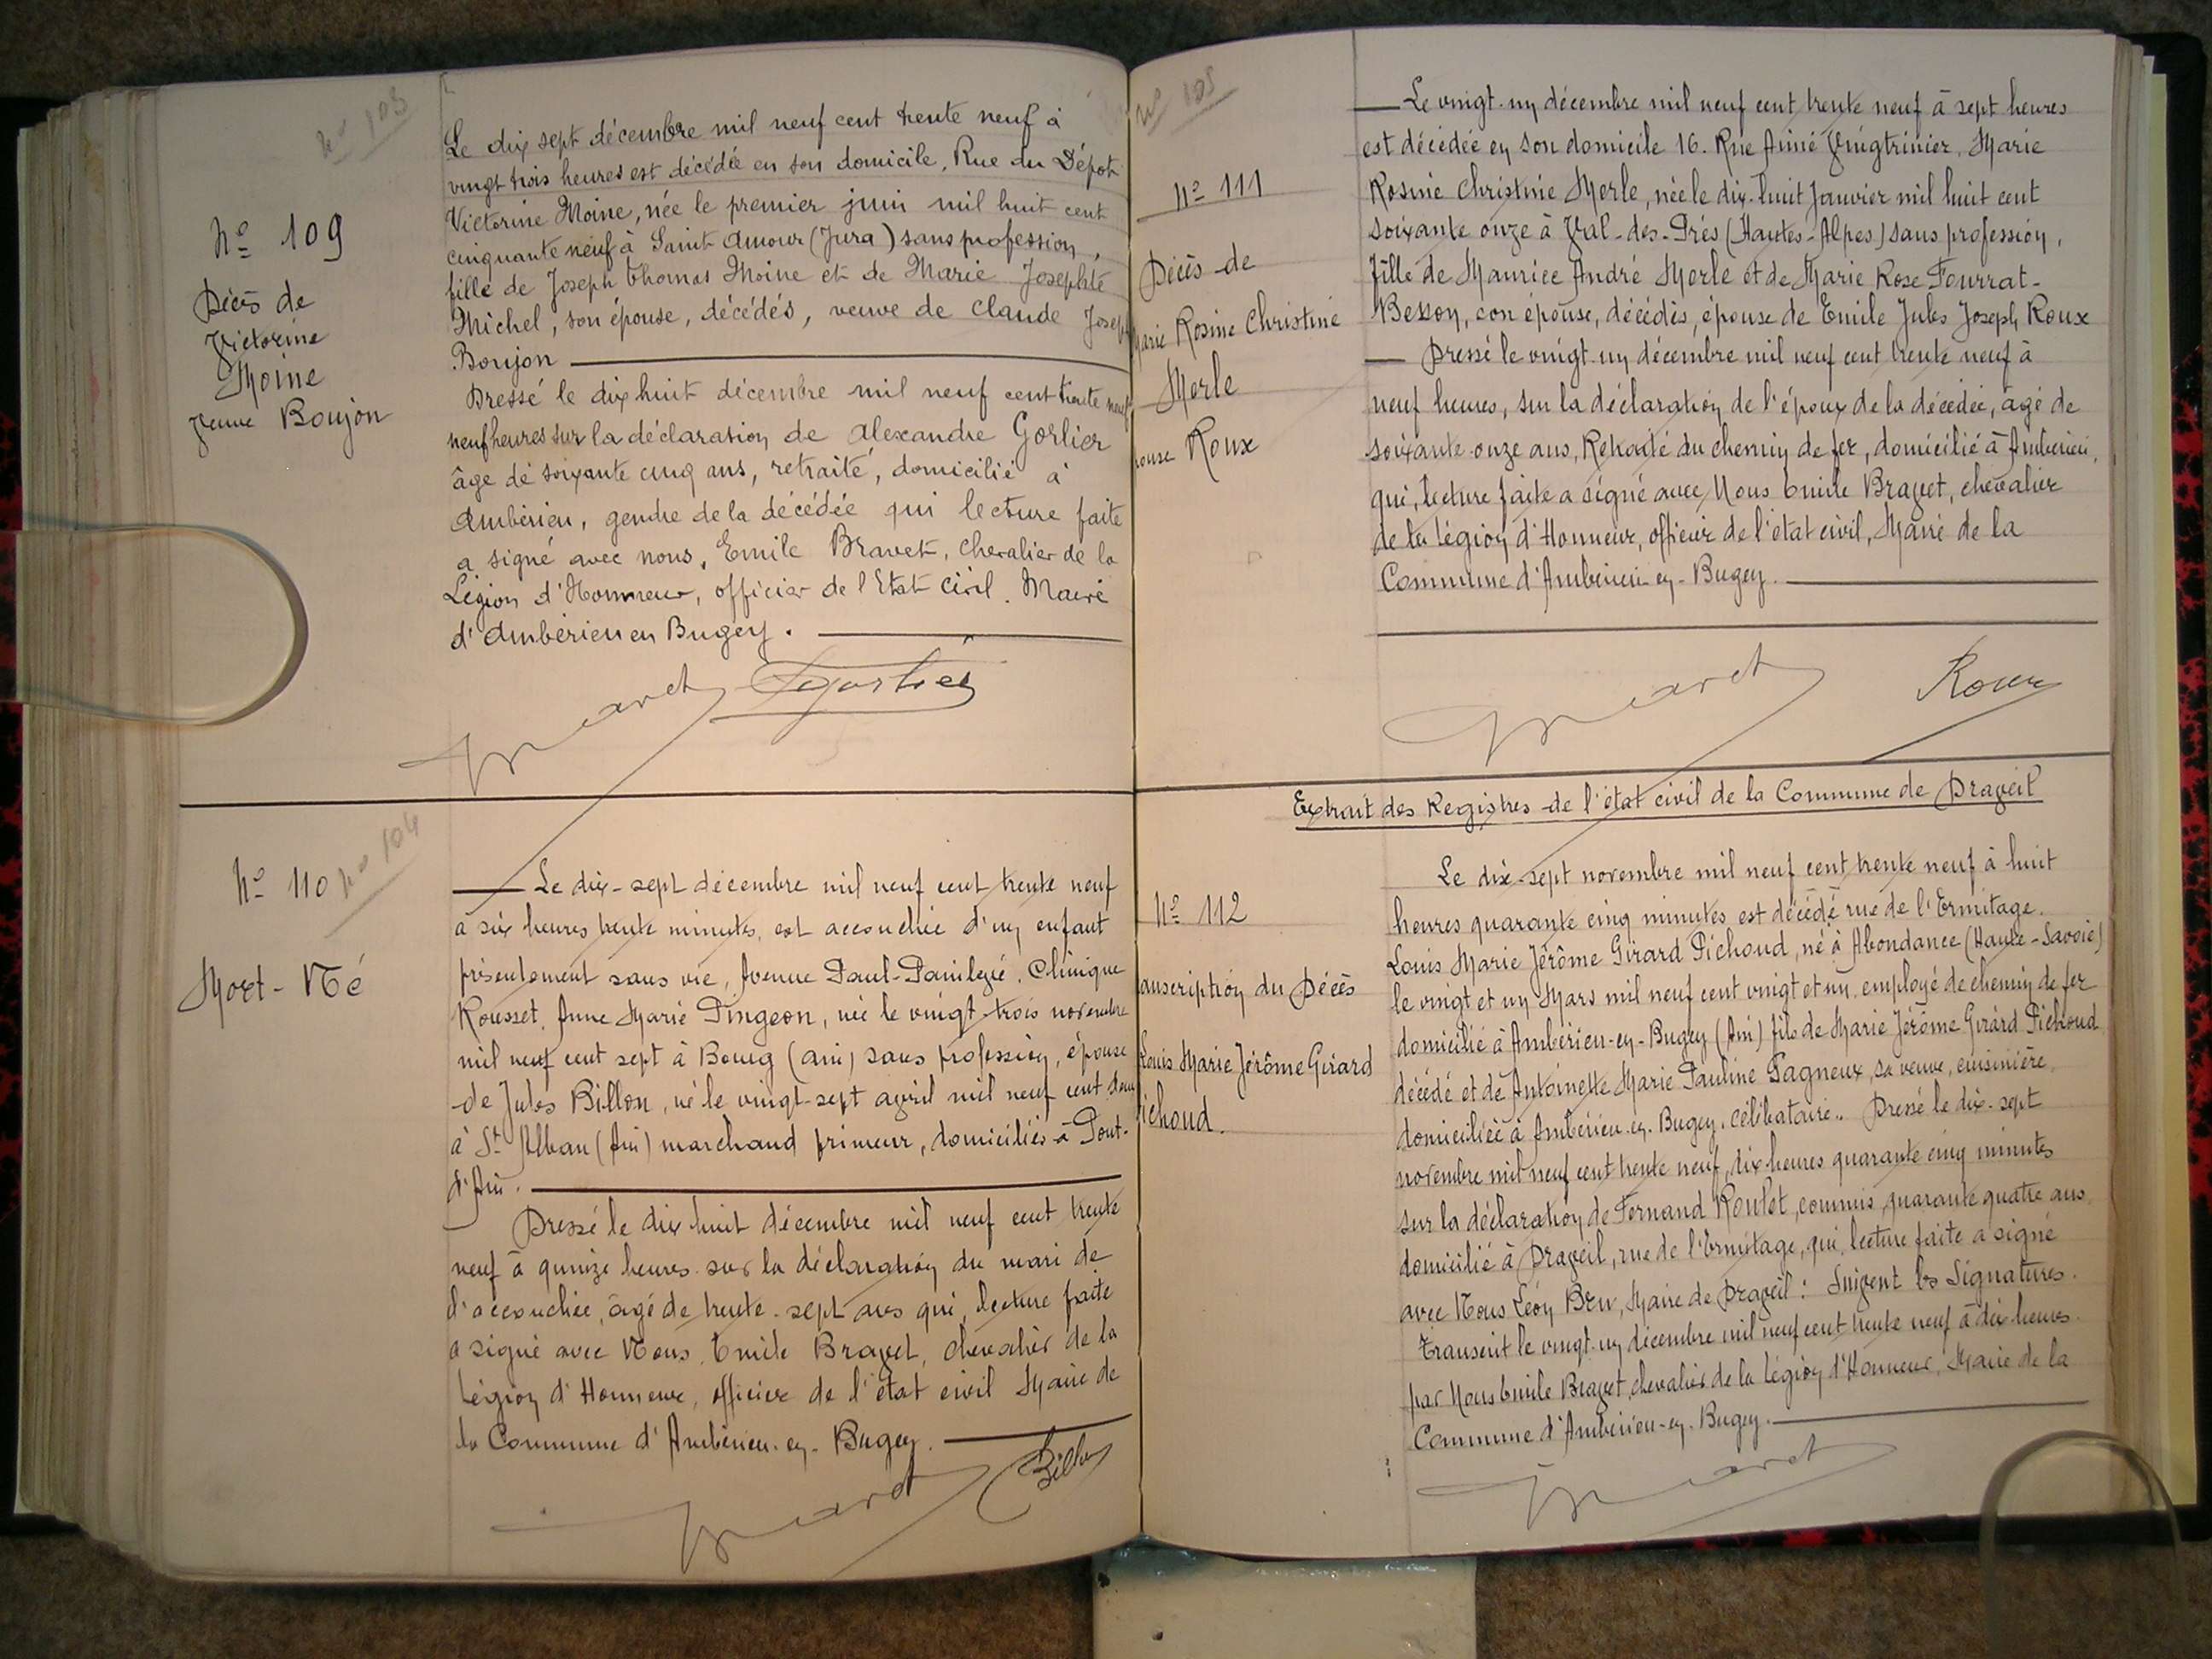 Nº 103
Nº 109
Décès de
Victorine
Moine
veuve Boujon
Le dix sept décembre mil neuf cent trente neuf à
vingt trois heures est décédée en son domicile, Rue du Dépôt
Victorine Moine, née le premier juin mil huit cent
cinquante neuf à Saint Amour (Jura) sans profession,
fille de Joseph Thomas Moine et de Marie Josephte
Michel, son épouse, décédés, veuve de Claude Joseph
Boujon
Dressé le dix huit décembre mil neuf cent trente neuf
neuf heures sur la déclaration de Alexandre Gorlier
âge de soixante cinq ans, retraité, domicilié à
Ambérieu, gendre de la décédée qui lecture faite
a signé avec nous, Emile Bravet, Chevalier de la
Légion d'Honneur, officier de l'Etat Civil. Maire
d'Ambérieu en Bugey.
Nº 110
Nº 104
Mort-Né
Le dix-sept décembre mil neuf cent trente neuf
à six heures trente minutes, est accouchée d'un enfant
présentement sans vie, Avenue Paul-Painlevé, Clinique
Rousset, Anne Marie Pingeon, née le vingt-trois novembre
mil neuf cent sept à Bourg (Ain) sans profession, épouse
de Jules Billon, né le vingt-sept avril mil neuf cent deux
à St Alban (Ain) marchand primeur, domiciliés à Pont-
d'Ain.
Dressé le dix huit décembre mil neuf cent trente
neuf à quinze heures sur la déclaration du mari de
l'accouchée, âgé de trente-sept ans qui, lecture faite
a signé avec Nous, Emile Bravet, chevalier de la
Légion d'Honneur, officier de l'état civil Maire de
la Commune d'Ambérieu-en-Bugey.
Nº 105
Nº 111
Décès de
Marie Rosine Christine
Merle
pouse Roux
Le vingt-un décembre mil neuf cent trente neuf à sept heures
est décédée en son domicile 16. Rue Aimé Vingtrinier, Marie
Rosine Christine Merle, née le dix-huit Janvier mil huit cent
soixante onze à Val-des-Prés (Hautes-Alpes) sans profession,
fille de Maurice André Merle et de Marie Rose Fourrat-
Besson, son épouse, décédés, épouse de Emile Jules Joseph Roux
Dressé le vingt-un décembre mil neuf cent trente neuf à
neuf heures, sur la déclaration de l'époux de la décédée, âgé de
soixante-onze ans, Retraité du chemin de fer, domicilié à Ambérieu,
qui, lecture faite a signé avec Nous Emile Bravet, chevalier
de la Légion d'Honneur, officier de l'état civil, Maire de la
Commune d'Ambérieu-en-Bugey.
Roux
Extrait des Registres de l'état civil de la Commune de Draveil
Nº 112
anscription du Décès
Louis Marie Jérôme Girard
ichoud.
Le dix-sept novembre mil neuf cent trente neuf à huit
heures quarante cinq minutes est décédé rue de l'Ermitage.
Louis Marie Jérôme Girard Pichoud, né à Abondance (Haute-Savoie)
le vingt et un Mars mil neuf cent vingt et un, employé de chemin de fer
domicilié à Ambérieu-en-Bugey (Ain) fils de Marie Jérôme Girard Pichoud
décédé et de Antoinette Marie Pauline Gagneux, sa veuve, cuisinière,
domiciliée à Ambérieu-en-Bugey, célibataire.. Dressé le dix-sept
novembre mil neuf cent trente neuf, dix heures quarante cinq minutes
sur la déclaration de Fernand Roulet, commis, quarante quatre ans
domicilié à Draveil, rue de l'Ermitage, qui, lecture faite a signé
avec Nous Léon Bru, Maire de Draveil: Suivent les Signatures.
Transcrit le vingt-un décembre mil neuf cent trente neuf à dix heures
par Nous Emile Bravet, chevalier de la Légion d'Honneur, Maire de la
Commune d'Ambérieu-en-Bugey.